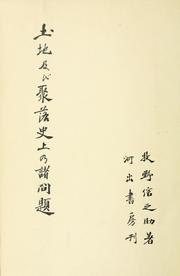 牧野信之助著
土地及び聚落史上の諸問題
河出書房刊